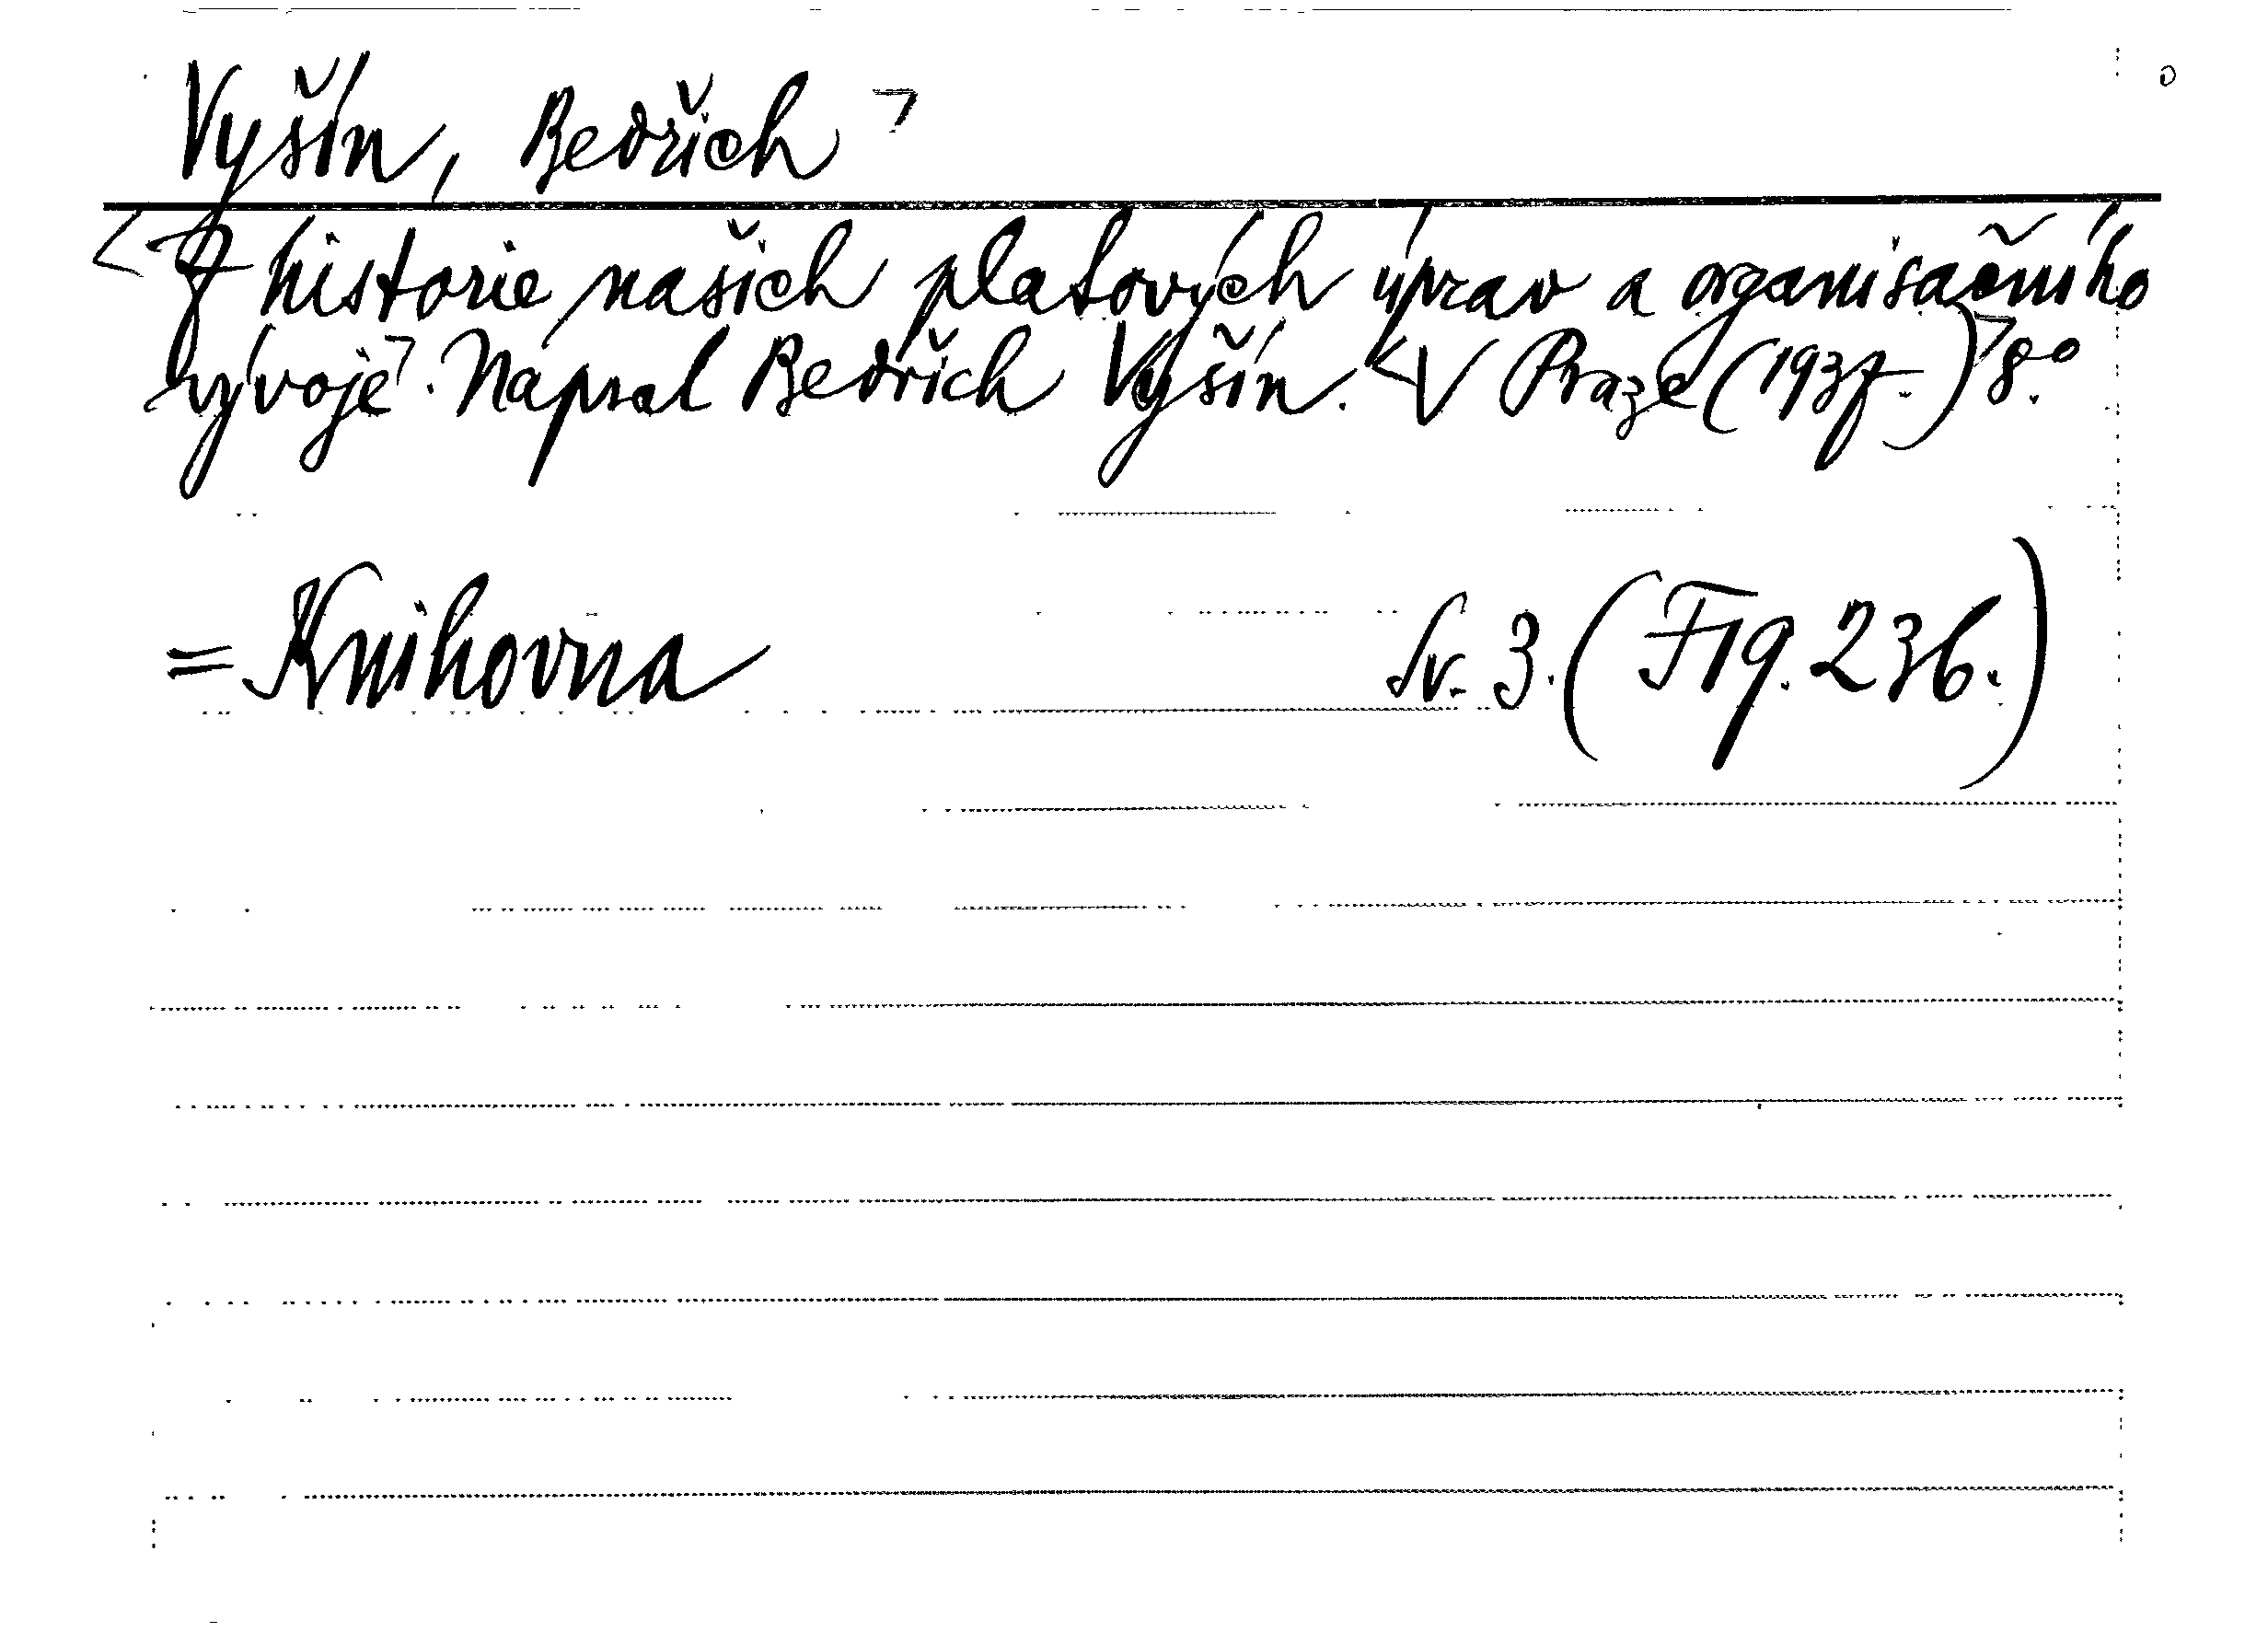 Vyšín, Bedřich
Z historie našich platových úprav a organisačního
vývoje. Napsal Bedřich Vyšín. V Praze (1937.) 8.°
= Knihovna Sv. 3. (F 19. 236.)